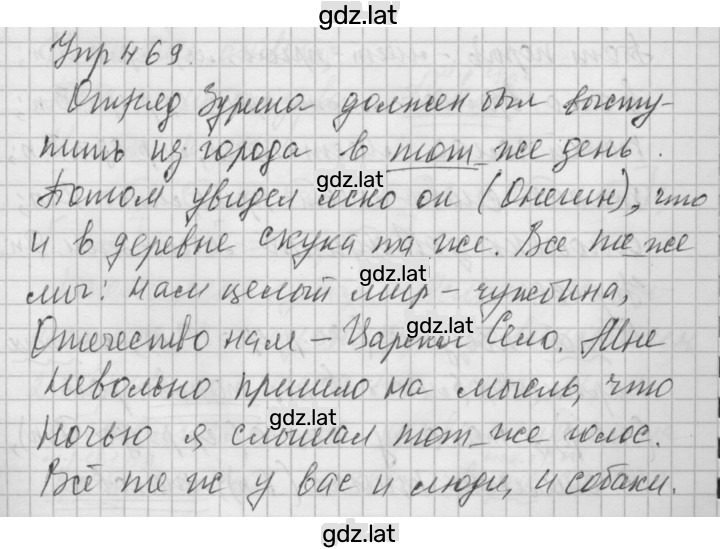 gdz.lat
Упр 469.
Отряд Зурина должен был высту-
пить из города в тот же день.
gdz.lat
Потом увидел ясно он (Онегин), что
и в деревне скука та же. Все те же
gdz.lat
мы: нам целый мир - чужбина,
Отечество нам - Царское Село. Мне
gdz.lat
невольно пришло на мысль, что
gdz.lat
ночью я слышал тот же голос.
Всё те ж у вас и люди, и собаки.
gdz.lat